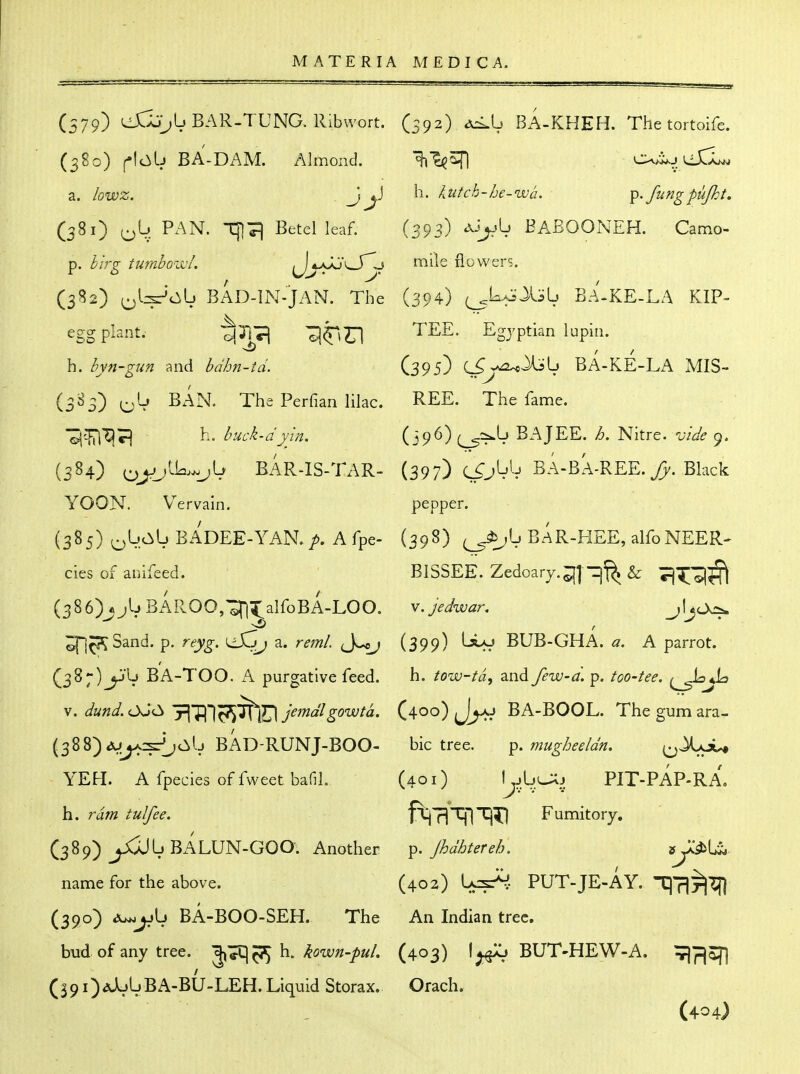 MATERIA MEDICA.
(379) بارتنگ BAR-TUNG. Ribwort.
(380) بادام BA-DAM. Almond.
a. lowz. لوز
(381) پان PAN. पान Betel leaf.
p. birg tumbowl. برگ تنبول
(382) بادنجان BAD-IN-JAN. The
egg plant.
h. byn-gun and bāhn-ta.
(383) بان BAN. The Perſian lilac.
बकायन h. buck-a'yin.
(384) بارسطاريون BAR-IS-TAR-
YOON. Vervain.
(385) باديان BADEE-YAN. p. A ſpe-
cies of aniſeed.
(386) بارو BAROO, alſo BA-LOO.
बालू Sand. p. reyg. ريگ a. reml. رمل
(387) باتو BA-TOO. A purgative ſeed.
v. dund. دند jemālgowta.
(388) بادرنجبويه BAD-RUNJ-BOO-
YEH. A ſpecies of ſweet baſil.
h. rām tulſee.
(389) بالنگو BALUN-GOO. Another
name for the above.
(390) بابوسه BA-BOO-SEH. The
bud of any tree. h. kown-pul.
(391) بابله BA-BU-LEH. Liquid Storax.
(392) باخه BA-KHEH. The tortoiſe.
h. kutch-he-wā. p. ſung puſht. سنگ پشت
(393) بابونه BABOONEH. Camo-
mile flowers.
(394) باقلاقبطي BA-KE-LA KIP-
TEE. Egyptian lupin.
(395) باقلامصري BA-KE-LA MIS-
REE. The ſame.
(396) باجي BAJEE. h. Nitre. vide 9.
(397) باباري BA-BA-REE. ſy. Black
pepper.
(398) بارهي BAR-HEE, alſo NEER-
BISSEE. Zedoary. &
v. jedwar. جدوار
(399) ببغا BUB-GHA. a. A parrot.
h. tow-tā, and ſew-a. p. too-tee. طوطي
(400) ببول BA-BOOL. The gum ara-
bic tree. p. mugheelān. مغيلان
(401) پتپاپرا PIT-PAP-RA.
पितपापरा Fumitory.
p. ſhāhtereh. شاهتره
(402) پتجيا PUT-JE-AY.
An Indian tree.
(403) بتهوا BUT-HEW-A.
Orach.
(404)